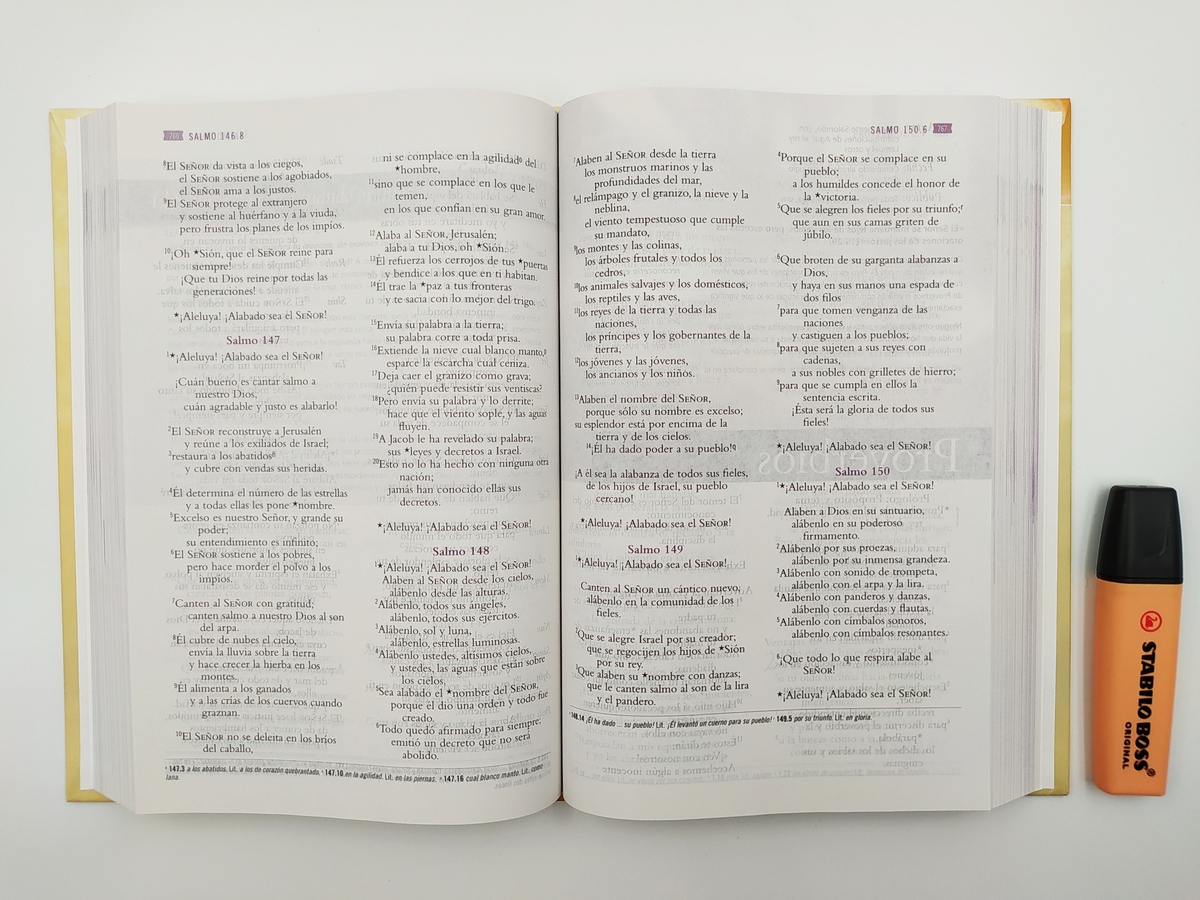 766 SALMO 146.8
⁸El SEÑOR da vista a los ciegos,
el SEÑOR sostiene a los agobiados,
el SEÑOR ama a los justos.
⁹El SEÑOR protege al extranjero
y sostiene al huérfano y a la viuda,
pero frustra los planes de los impíos.
¹⁰¡Oh *Sión, que el SEÑOR reine para
siempre!
¡Que tu Dios reine por todas las
generaciones!
*¡Aleluya! ¡Alabado sea el SEÑOR!
Salmo 147
¹*¡Aleluya! ¡Alabado sea el SEÑOR!
¡Cuán bueno es cantar salmo a
nuestro Dios,
cuán agradable y justo es alabarlo!
²El SEÑOR reconstruye a Jerusalén
y reúne a los exiliados de Israel;
³restaura a los abatidos
y cubre con vendas sus heridas.
⁴Él determina el número de las estrellas
y a todas ellas les pone *nombre.
⁵Excelso es nuestro Señor, y grande su
poder;
su entendimiento es infinito;
⁶El SEÑOR sostiene a los pobres,
pero hace morder el polvo a los
impíos.
⁷Canten al SEÑOR con gratitud;
canten salmo a nuestro Dios al son
del arpa.
⁸Él cubre de nubes el cielo,
envía la lluvia sobre la tierra
y hace crecer la hierba en los
montes.
⁹Él alimenta a los ganados
y a las crías de los cuervos cuando
graznan.
¹⁰El SEÑOR no se deleita en los bríos
del caballo,
ni se complace en la agilidad del
*hombre,
¹¹sino que se complace en los que le
temen,
en los que confían en su gran amor.
¹²Alaba al SEÑOR, Jerusalén;
alaba a tu Dios, oh *Sión.
¹³Él refuerza los cerrojos de tus *puertas
y bendice a los que en ti habitan.
¹⁴Él trae la *paz a tus fronteras
y te sacia con lo mejor del trigo.
¹⁵Envía su palabra a la tierra;
su palabra corre a toda prisa.
¹⁶Extiende la nieve cual blanco manto,
esparce la escarcha cual ceniza.
¹⁷Deja caer el granizo como grava;
¿quién puede resistir sus ventiscas?
¹⁸Pero envía su palabra y lo derrite;
hace que el viento sople, y las aguas
fluyen.
¹⁹A Jacob le ha revelado su palabra;
sus *leyes y decretos a Israel.
²⁰Esto no lo ha hecho con ninguna otra
nación;
jamás han conocido ellas sus
decretos.
*¡Aleluya! ¡Alabado sea el SEÑOR!
Salmo 148
¹*¡Aleluya! ¡Alabado sea el SEÑOR!
Alaben al SEÑOR desde los cielos,
alábenlo desde las alturas.
²Alábenlo, todos sus ángeles,
alábenlo, todos sus ejércitos.
³Alábenlo, sol y luna,
alábenlo, estrellas luminosas.
⁴Alábenlo ustedes, altísimos cielos,
y ustedes, las aguas que están sobre
los cielos.
⁵Sea alabado el *nombre del SEÑOR,
porque él dio una orden y todo fue
creado.
⁶Todo quedó afirmado para siempre;
emitió un decreto que no será
abolido.
147.3 a los abatidos. Lit. a los de corazón quebrantado. 147.10 en la agilidad. Lit. en las piernas. 147.16 cual blanco manto. Lit. como
lana.
SALMO 150.6 767
⁷Alaben al SEÑOR desde la tierra
los monstruos marinos y las
profundidades del mar,
⁸el relámpago y el granizo, la nieve y la
neblina,
el viento tempestuoso que cumple
su mandato,
⁹los montes y las colinas,
los árboles frutales y todos los
cedros,
¹⁰los animales salvajes y los domésticos,
los reptiles y las aves,
¹¹los reyes de la tierra y todas las
naciones,
los príncipes y los gobernantes de la
tierra,
¹²los jóvenes y las jóvenes,
los ancianos y los niños.
¹³Alaben el nombre del SEÑOR,
porque sólo su nombre es excelso;
su esplendor está por encima de la
tierra y de los cielos.
¹⁴¡Él ha dado poder a su pueblo!
¡A él sea la alabanza de todos sus fieles,
de los hijos de Israel, su pueblo
cercano!
*¡Aleluya! ¡Alabado sea el SEÑOR!
Salmo 149
¹*¡Aleluya! ¡Alabado sea el SEÑOR!
Canten al SEÑOR un cántico nuevo,
alábenlo en la comunidad de los
fieles.
²Que se alegre Israel por su creador;
que se regocijen los hijos de *Sión
por su rey.
³Que alaben su *nombre con danzas;
que le canten salmo al son de la lira
y el pandero.
⁴Porque el SEÑOR se complace en su
pueblo;
a los humildes concede el honor de
la *victoria.
⁵Que se alegren los fieles por su triunfo;
que aun en sus camas griten de
júbilo.
⁶Que broten de su garganta alabanzas a
Dios,
y haya en sus manos una espada de
dos filos
⁷para que tomen venganza de las
naciones
y castiguen a los pueblos;
⁸para que sujeten a sus reyes con
cadenas,
a sus nobles con grilletes de hierro;
⁹para que se cumpla en ellos la
sentencia escrita.
¡Ésta será la gloria de todos sus
fieles!
*¡Aleluya! ¡Alabado sea el SEÑOR!
Salmo 150
¹*¡Aleluya! ¡Alabado sea el SEÑOR!
Alaben a Dios en su santuario,
alábenlo en su poderoso
firmamento.
²Alábenlo por sus proezas,
alábenlo por su inmensa grandeza.
³Alábenlo con sonido de trompeta,
alábenlo con el arpa y la lira.
⁴Alábenlo con panderos y danzas,
alábenlo con cuerdas y flautas.
⁵Alábenlo con címbalos sonoros,
alábenlo con címbalos resonantes.
⁶¡Que todo lo que respira alabe al
SEÑOR!
*¡Aleluya! ¡Alabado sea el SEÑOR!
148.14 ¡Él ha dado ... su pueblo! Lit. ¡Él levantó un cuerno para su pueblo! 149.5 por su triunfo. Lit. en gloria.
STABILO BOSS®
ORIGINAL